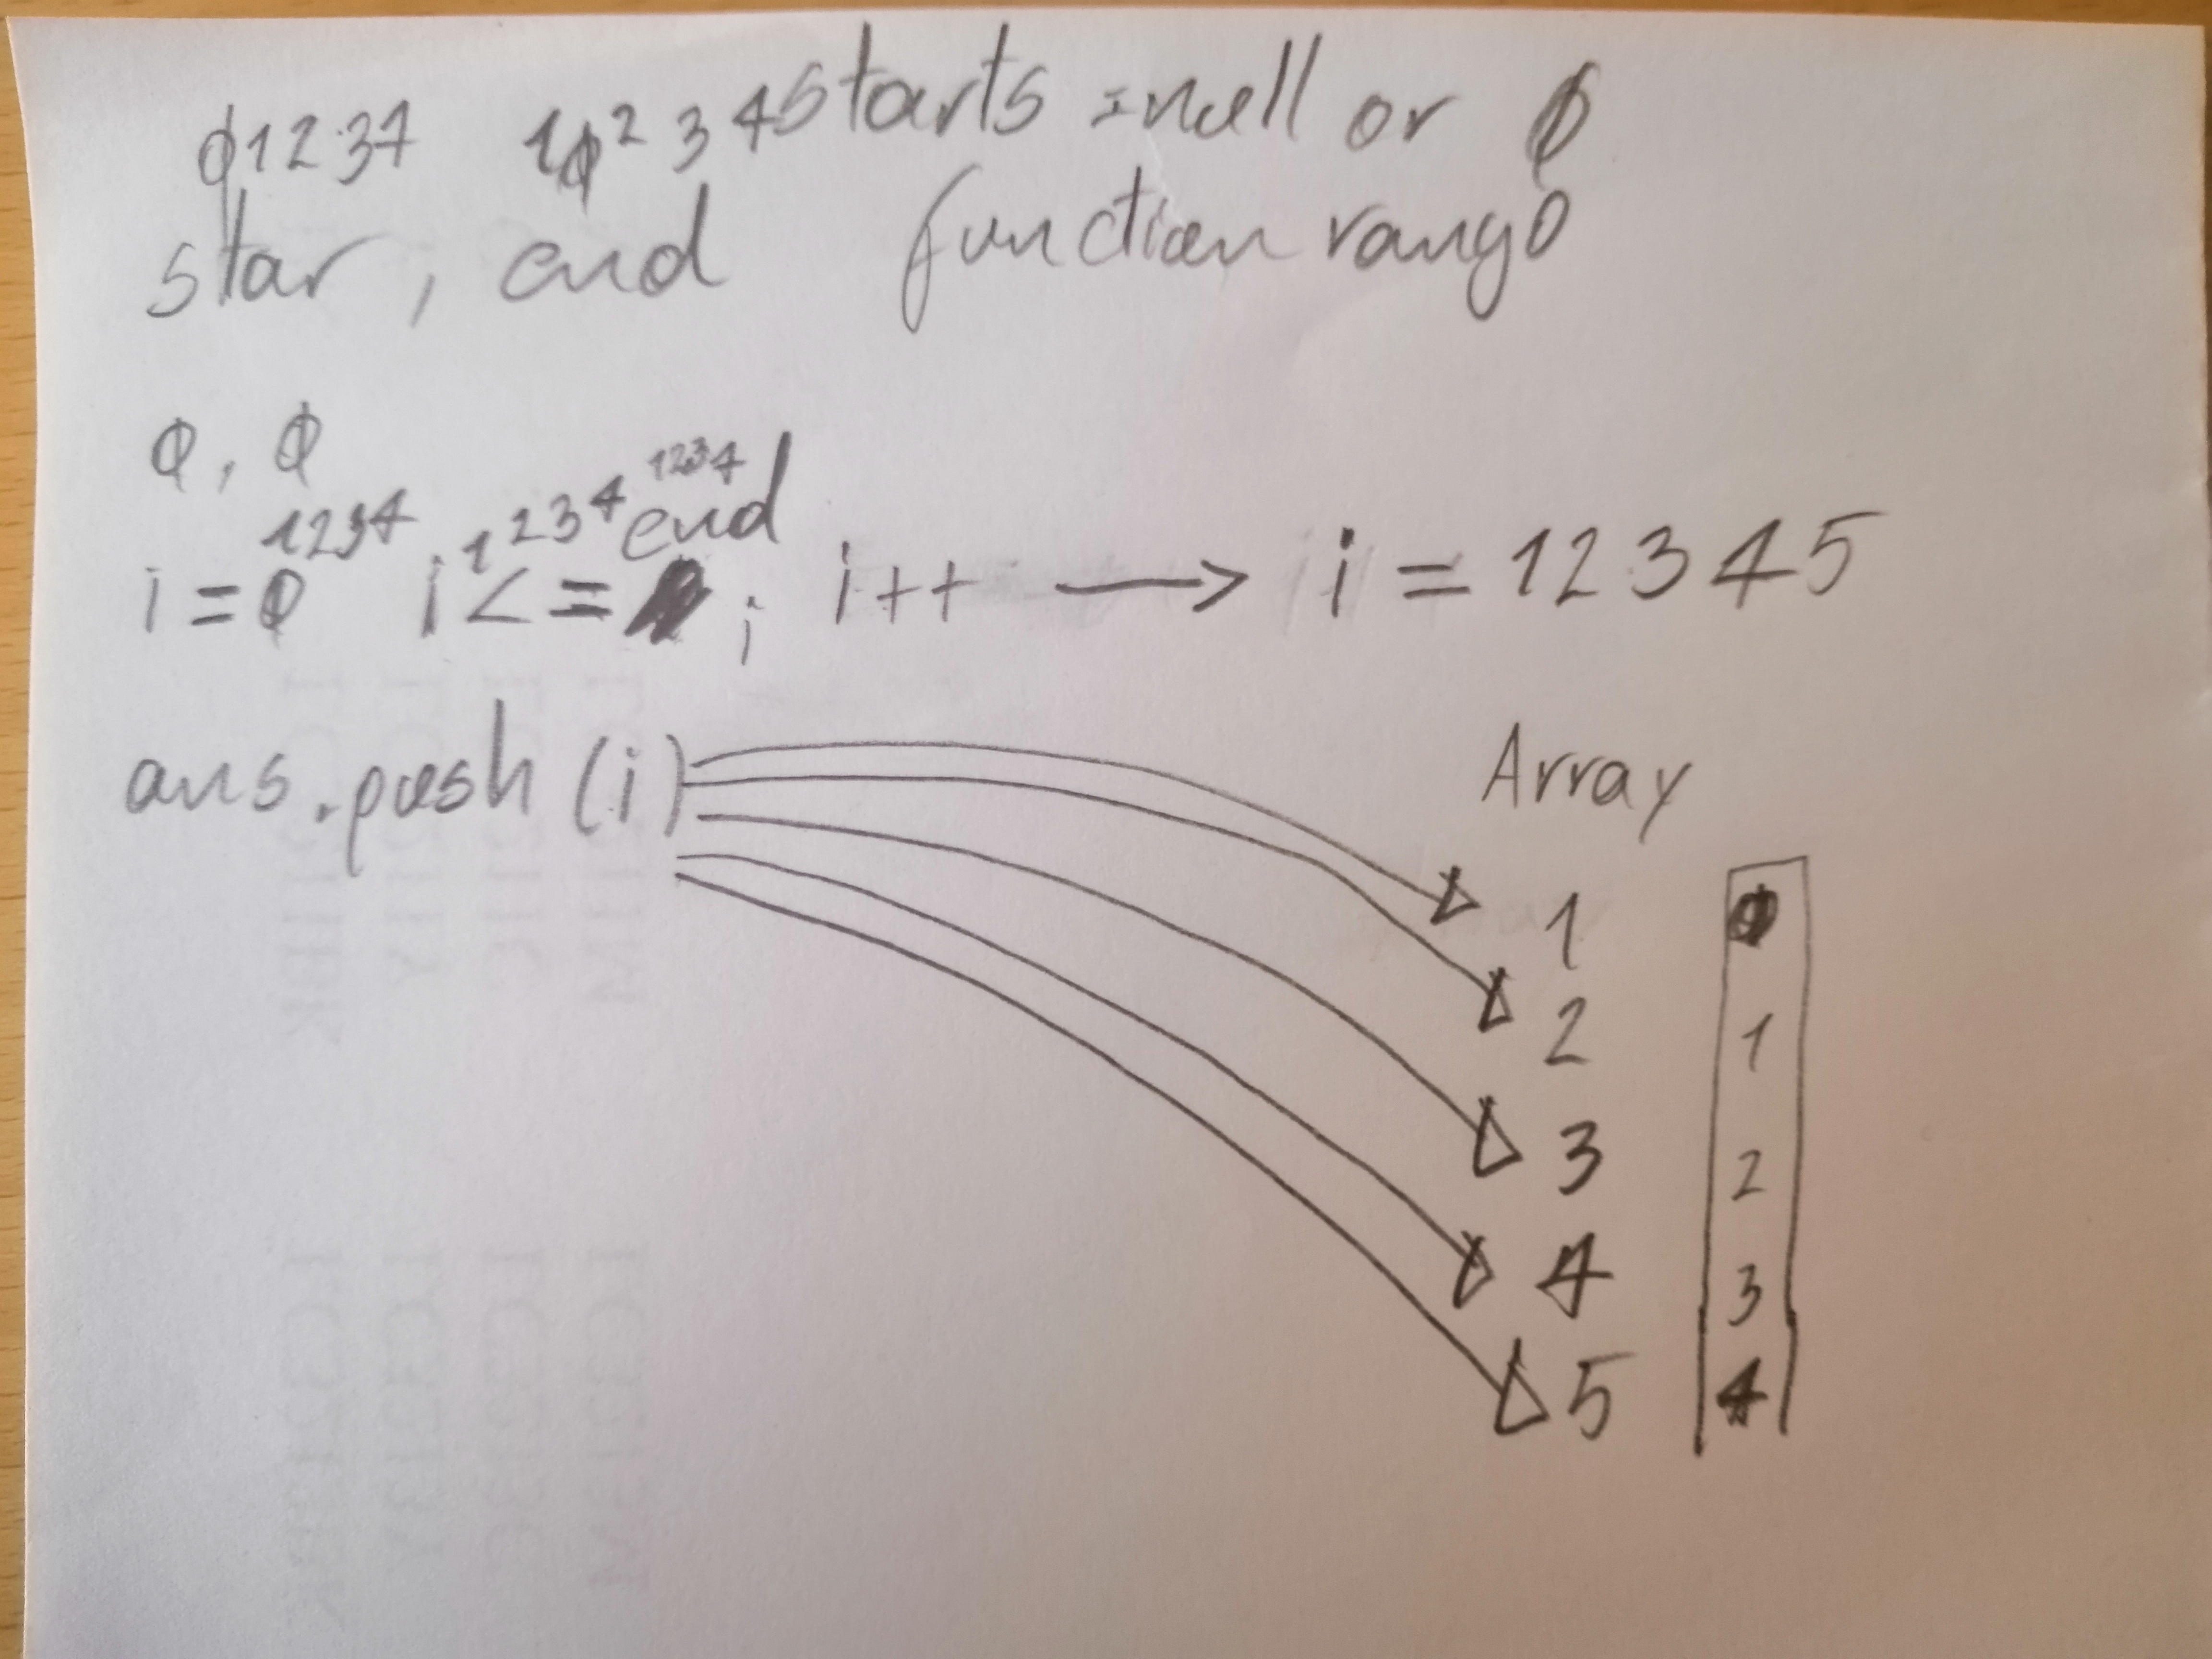 φ1234 1φ2345 starts inull or φ
star, end function rang0
φ, φ
1234 1234 1234
i = φ i <= end ; i++ → i = 12345
ans.push (i)
Array
1 φ
2 1
3 2
4 3
5 4